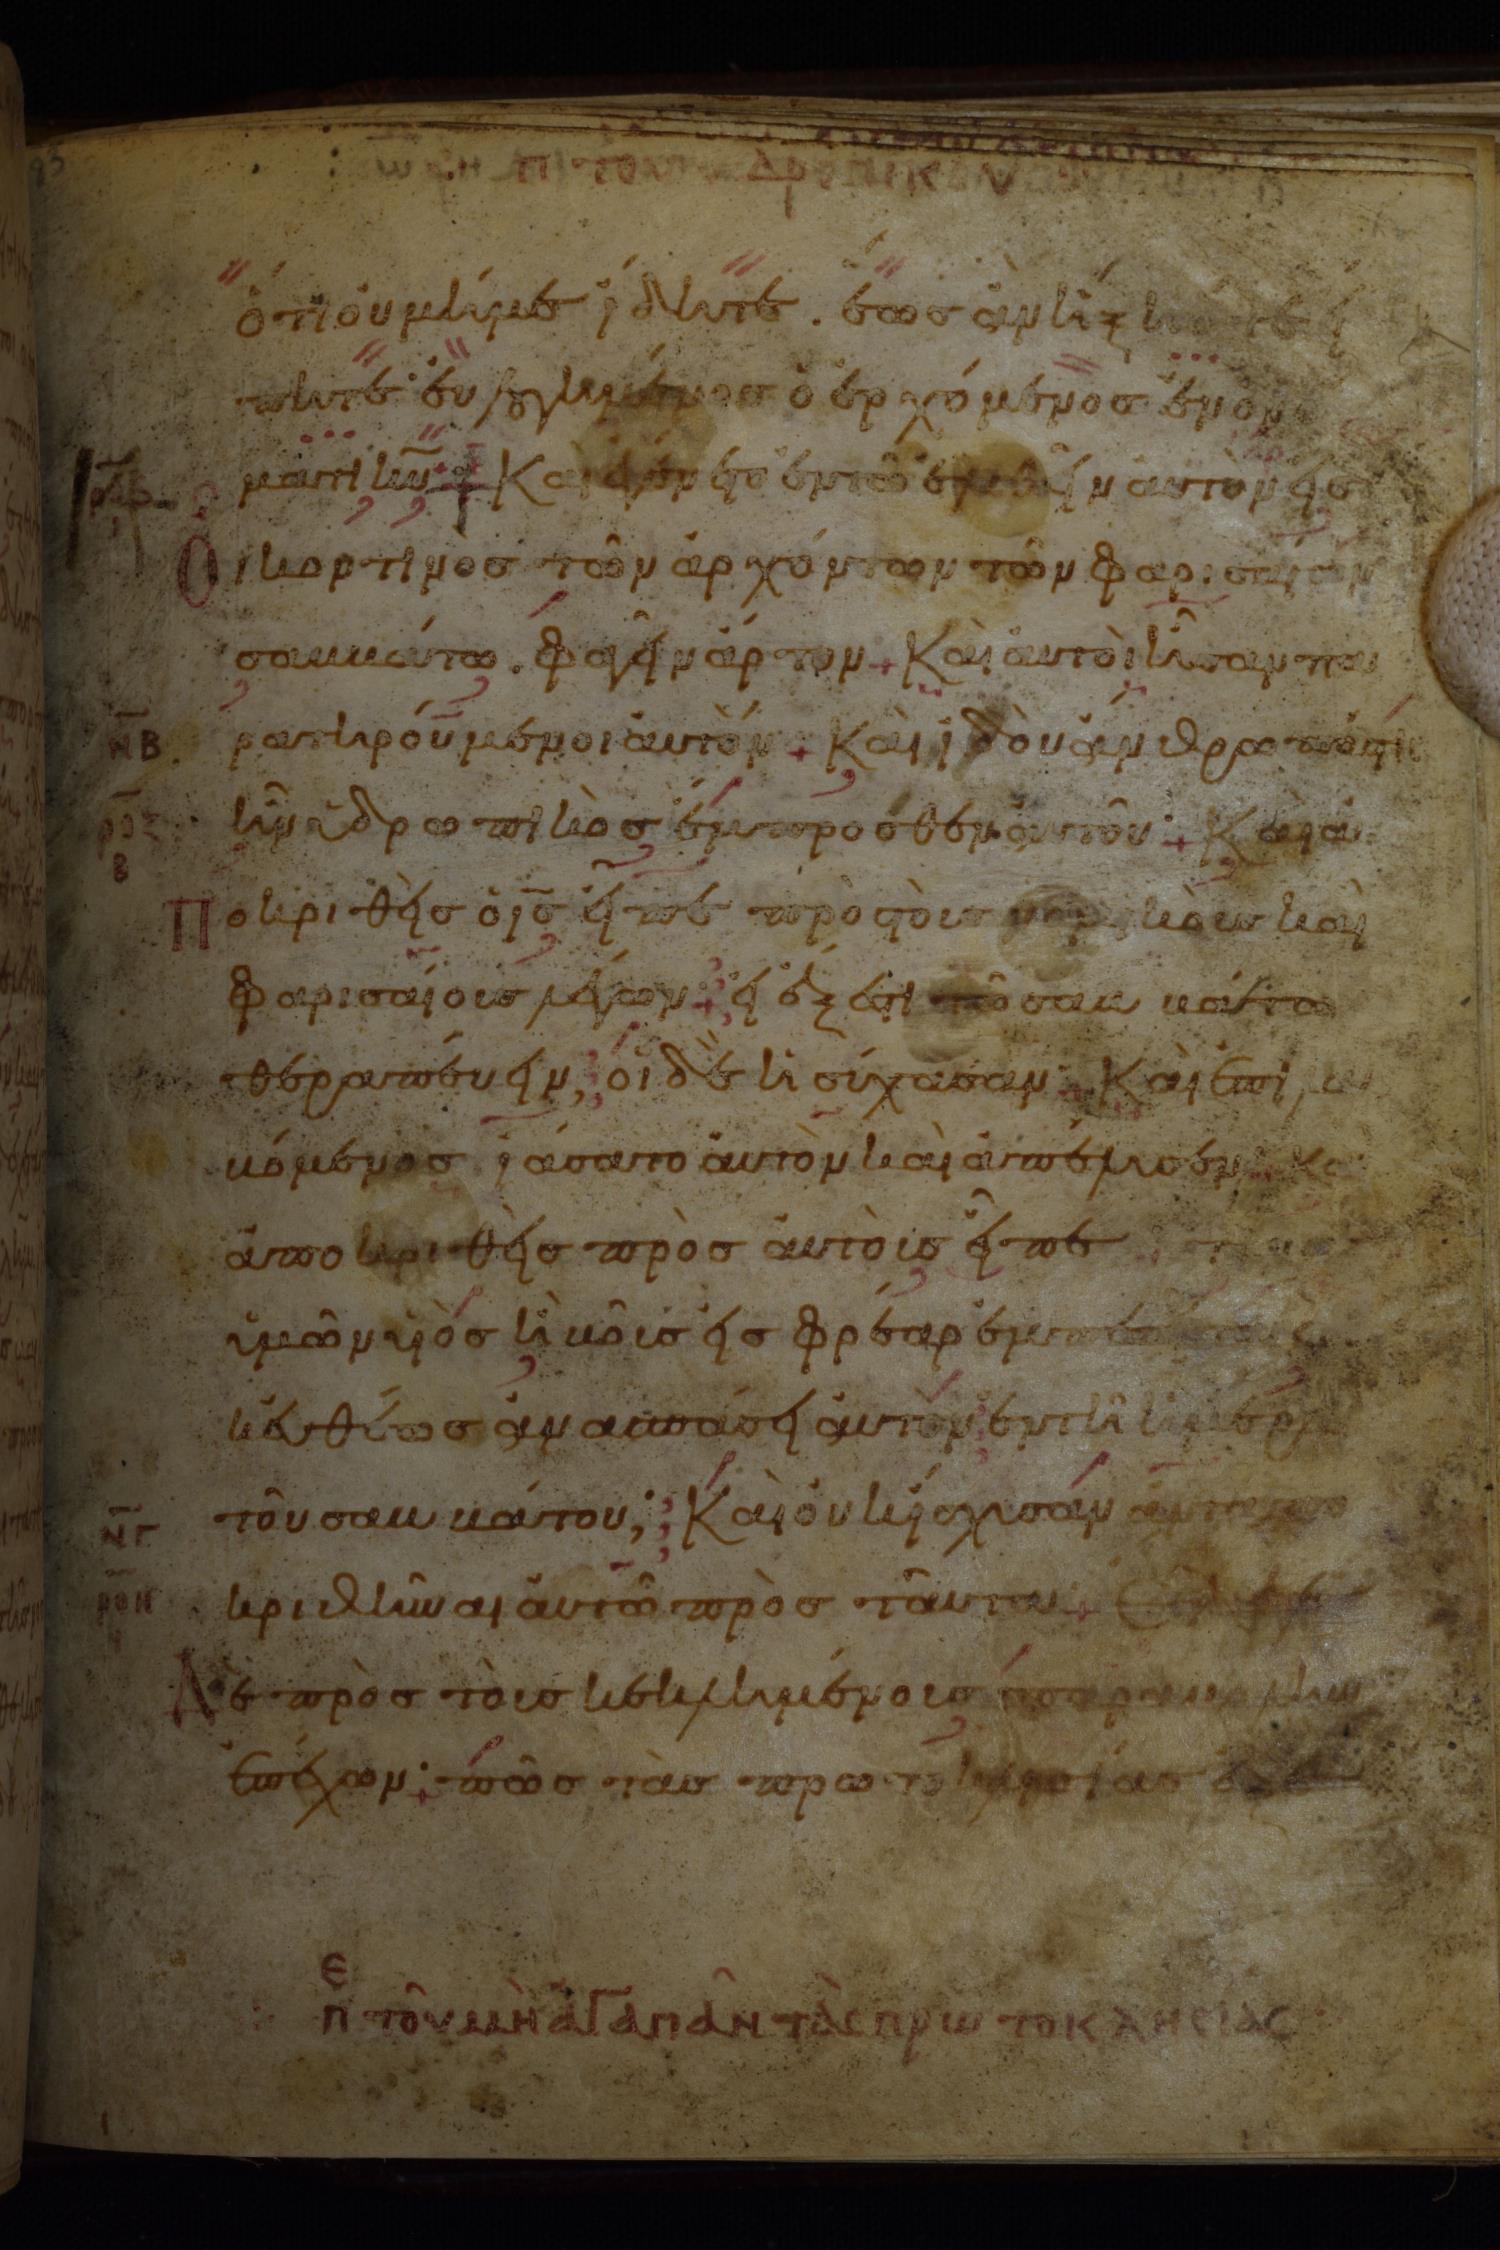 περὶ τοῦ ὑδρωπικοῦ
ὅτι οὐ μήμε ἴδητε . ἕως ἂν ἥξει ὅτε εἴ
πητε εὐλογημένος ὁ ἐρχόμενος ἐν ὀνό
ματι κ̅υ̅ + Καὶ ἐγένετο ἐν τῶ ἐλθεῖν αὐτὸν εἰς
οἶκόν τινος τῶν ἀρχόντων τῶν φαρισαίων
σαββάτω . φαγεῖν ἄρτον + Καὶ αὐτοὶ ἦσαν πα
ρατηρούμενοι αὐτόν + Καὶ ἰδοὺ ἄνθρωπός τις
ν̅β̅
ἦν ὑδρωπικὸς ἔμπροσθεν αὐτοῦ + Καὶ ἀ
ποκριθεὶς ὁ ι̅ς̅ εἶπε πρὸς τοὺς νομικοὺς καὶ
φαρισαίους λέγων + εἰ ἔξεστι τῶ σαββάτω
θεραπεύειν ; οἱ δὲ ἡσύχασαν + Καὶ ἐπιλα
βόμενος ἰάσατο αὐτὸν καὶ ἀπέλυσεν Κα
ἀποκριθεὶς πρὸς αὐτοὺς εἶπε τίνος
ὑμῶν υἱὸς ἢ βοῦς εἰς φρέαρ ἐμπεσεῖται
κ εὐθέως ἀνασπάσει αὐτὸν ἐν τῆ ἡμέρα
τοῦ σαββάτου ; Καὶ οὐκ ἴσχυσαν ἀνταπο
ν̅γ̅
κριθῆναι αὐτῶ πρὸς ταῦτα + Ἔλεγε
ρ̅ο̅η̅
Δὲ πρὸς τοὺς κεκλημένους παραβολὴν
ἐπέχων + πῶς τὰς πρωτοκλισίας ἐξε
πε τοῦ μὴ ἀγαπᾶν τὰς πρωτοκλησίας